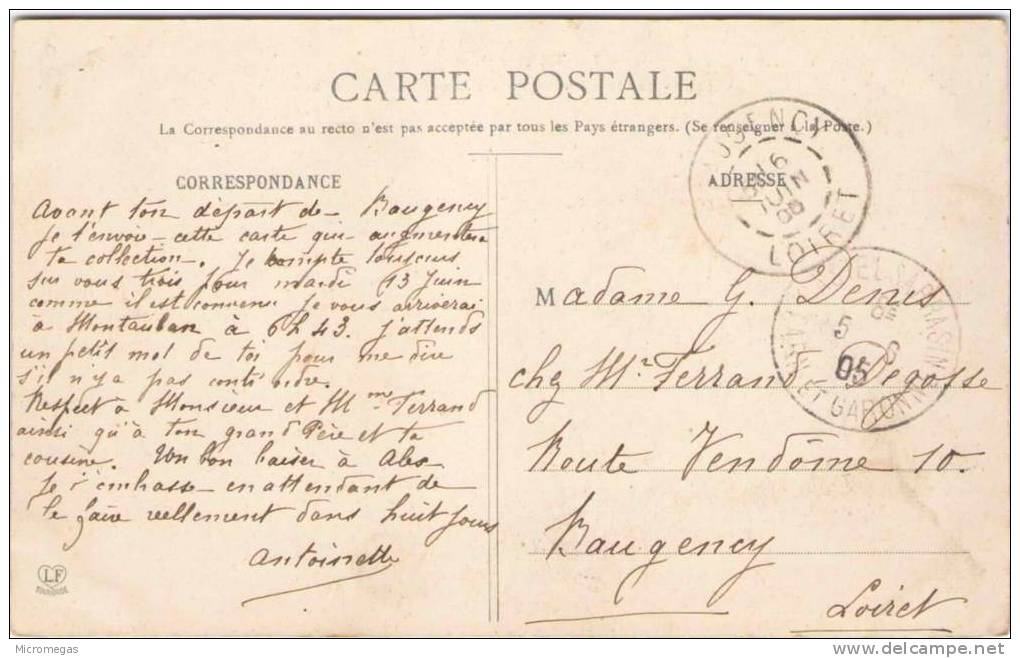 CARTE POSTALE
La Correspondance au recto n'est pas acceptée par tous les Pays étrangers. (Se renseigner à la Poste.)
CORRESPONDANCE
Avant ton départ de Baugency
je t'envoie cette carte qui augmentera
ta collection. Je compte toujours
sur vous trois pour mardi 13 Juin
comme il est convenu je vous arriverai
à Montauban à 6h43. J'attends
un petit mot de toi pour me dire
s'il n'y a pas contrordre.
Respect à Monsieur et Mme Ferrand
ainsi qu'à ton grand Père et ta
cousine. Un bon baiser à Alex
Je t'embrasse en attendant de
le faire réellement dans huit jours
Antoinette
LF
TOULOUSE
ADRESSE
Madame G. Denis
chez Mr Ferrand Degasse
Route Vendôme 10.
Baugency
Loiret
BEAUGENCY
16
JUIN
LOIRET
CASTELSARRASIN
5 6
05
TARN ET GARONNE
Micromegas
delcampe.net